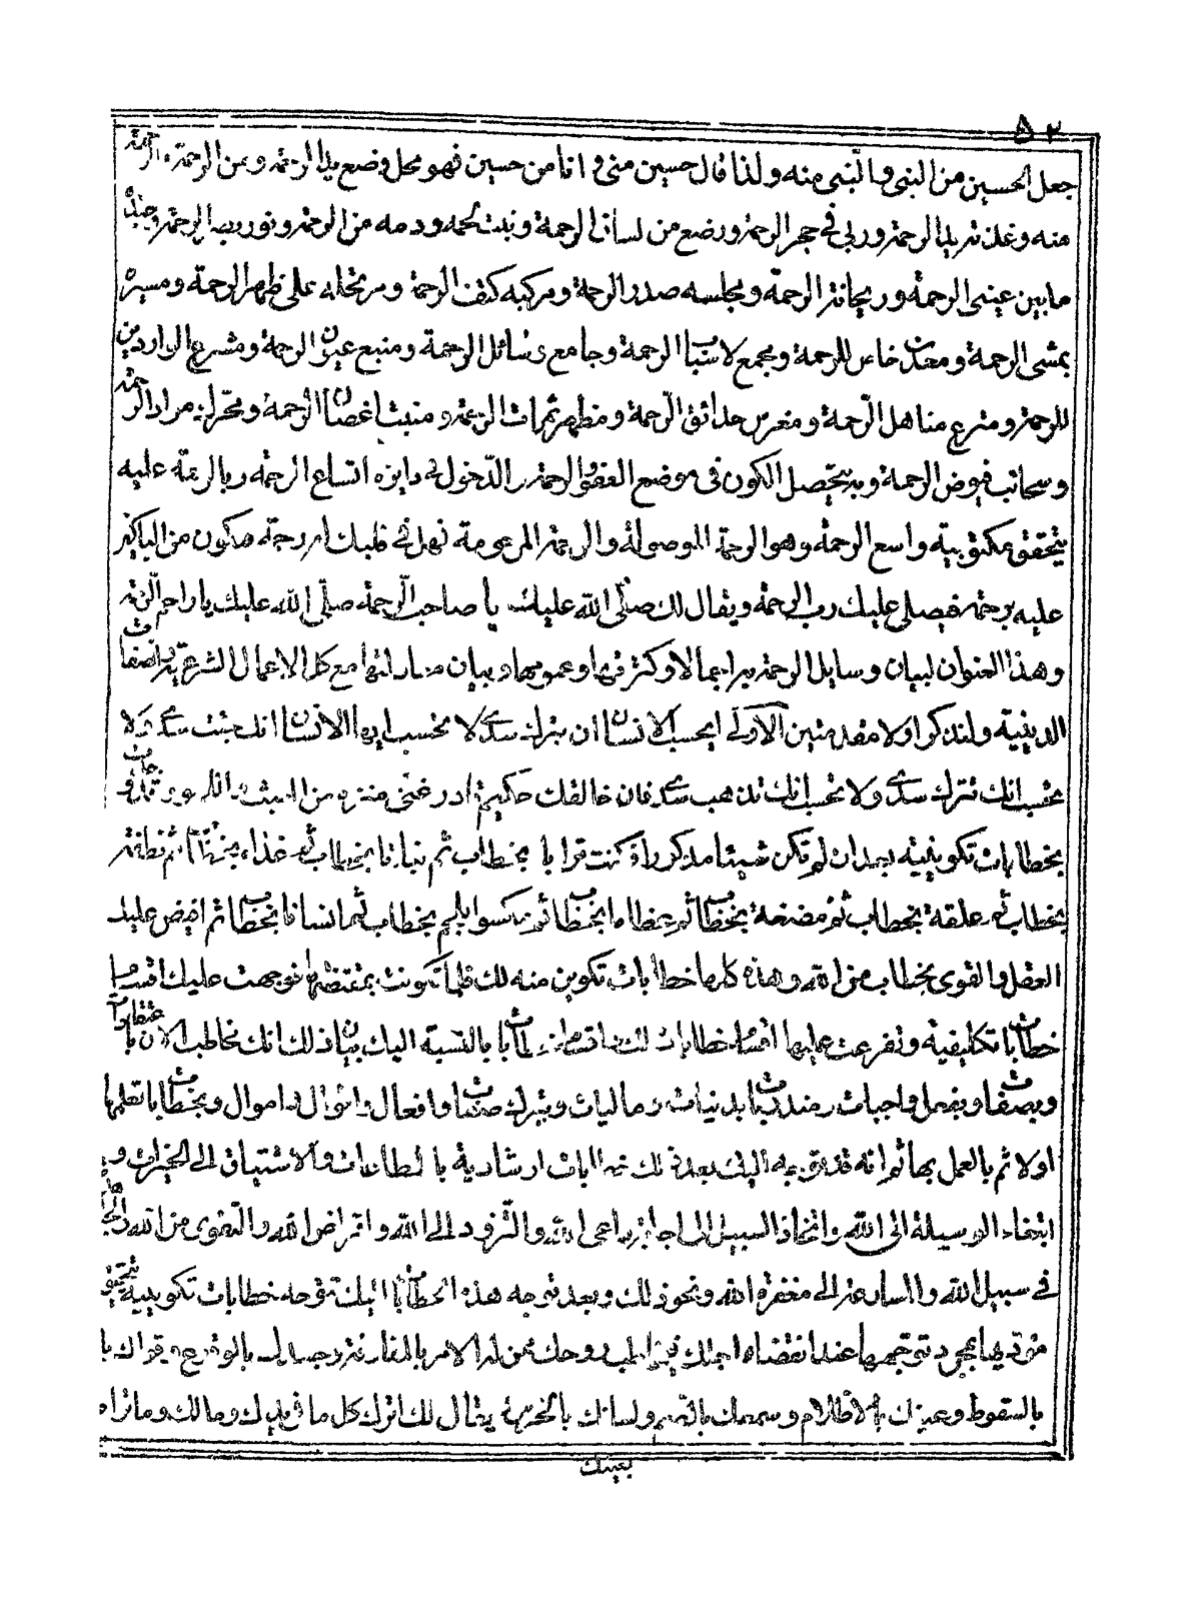 ٥٢
جعل الحسين من النبي والنبي منه ولذا قال حسين مني وانا من حسين فهو محل وضع يد الرحمة ومن الرحمة الرحمة
منه وغذته يد الرحمة وربي في حجر الرحمة ورضع من لسان الرحمة ونبت لحمه ودمه من الرحمة ونور بصر الرحمة وجلدة
ما بين عيني الرحمة وريحانة الرحمة ومجلسه صدر الرحمة ومركبه كتف الرحمة ومرتحله على ظهر الرحمة ومسيره
بمشي الرحمة ومعدن خاص للرحمة ومجمع لاسباب الرحمة وجامع وسائل الرحمة ومنبع عيون الرحمة ومشرع الواردين
للرحمة ومترع مناهل الرحمة ومغرس حدائق الرحمة ومظهر ثمرات الرحمة ومنبت اغصان الرحمة ومحرك مواد الرحمة
وسحائب فيوض الرحمة وبه يتحصل الكون في موضع العفو والرحمة والدخول في دايرة اتساع الرحمة وبالرقة عليه
يتحقق مكتوبية واسع الرحمة وهو الرحمة الموصولة والرحمة المرحومة فهل في قلبك له رحمة فتكون من الباكين
عليه برحمة فيصلي عليك رب الرحمة ويقال لك صلى الله عليك يا صاحب الرحمة صلى الله عليك يا راحم الرحمة
وهذا العنوان لبيان وسايل الرحمة به اجمالا وكثرتها وعمومها وبيان معادلتها مع كل الاعمال الشرعية والصفات
الدينية ولنذكر اولا مقدمتين الأولى ايحسب الانسان ان يترك سدى لا تحسب ايها الانسان انك جئت سدى ولا
تحسب انك تترك سدى ولا تحسب انك تذهب سدى فان خالقك حكيم قادر غني منزه من العبث واللهو
بخطابات تكوينية بعد ان لم تكن شيئا مذكورا فكنت ترابا بخطاب ثم نباتا بخطاب ثم غذاء بخطاب ثم نطفة
بخطاب ثم علقة بخطاب ثم مضغة بخطاب ثم عظاما بخطاب ثم مكسوا بلحم بخطاب ثم انسانا بخطاب ثم افيض عليك
العقل والقوى بخطاب من الله وهذه كلها خطابات تكوين منه لك فلما تكونت بمقتضاها توجهت عليك اقسام
خطابات تكليفية وتفرعت عليها اقسام خطابات بالنسبة اليك بيان ذلك انك مخاطب الآن باعتقادات
وبصفات وبفعل واجبات ومندوبات بدنيات وماليات وبترك صفات وافعال واقوال واموال وبخطابات تعلمها
اولا ثم بالعمل بها ثم انه قد توجه اليك بعد ذلك خطابات ارشادية بالطاعات والاستباق الى الخيرات و
ابتغاء الوسيلة الى الله واتخاذ السبيل الى اجابة داعي الله والتزود الى الله واقراض الله والتقوى من الله والجهاد
في سبيل الله والمسارعة الى مغفرة الله ونحو ذلك وبعد توجه هذه الخطابات اليك تتوجه خطابات تكوينية يتحقق
مؤديها بمجرد توجهها عند انقضاء اجلك فيخاطب روحك ممن له الامر بالمفارقة وجسدك بالوقوع وقواك با
بالسقوط وعينك بالاظلام وسمعك بالصمم ولسانك بالخرس يقال لك اترك كل ما في يدك ومالك وما تراه
بعينك